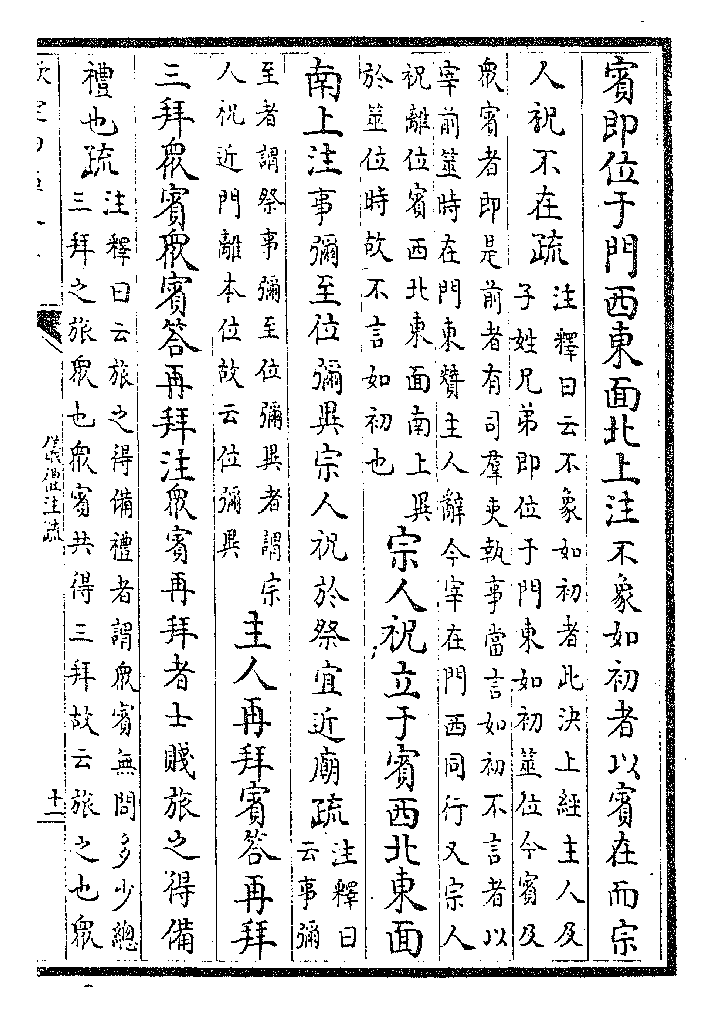 賔即位于門西東面北上注不象如初者以賔在而宗
人祝不在疏
注釋曰云不象如初者此決上經主人及
子姓兄弟即位于門東如初筮位今賔及
衆賔者即是前者有司羣吏執事當言如初不言者以
宰前筮時在門東贊主人辭今宰在門西同行又宗人
祝離位賔西北東面南上異
於筮位時故不言如初也
宗人祝立于賔西北東面
南上注事彌至位彌異宗人祝於祭宜近廟疏
注釋曰
云事彌
至者謂祭事彌至位彌異者謂宗
人祝近門離本位故云位彌異
主人再拜賔答再拜
三拜衆賔衆賔答再拜注衆賔再拜者士賤旅之得備
禮也疏
注釋曰云旅之得備禮者謂衆賔無問多少總
三拜之旅衆也衆賔共得三拜故云旅之也衆
儀禮注疏
十二